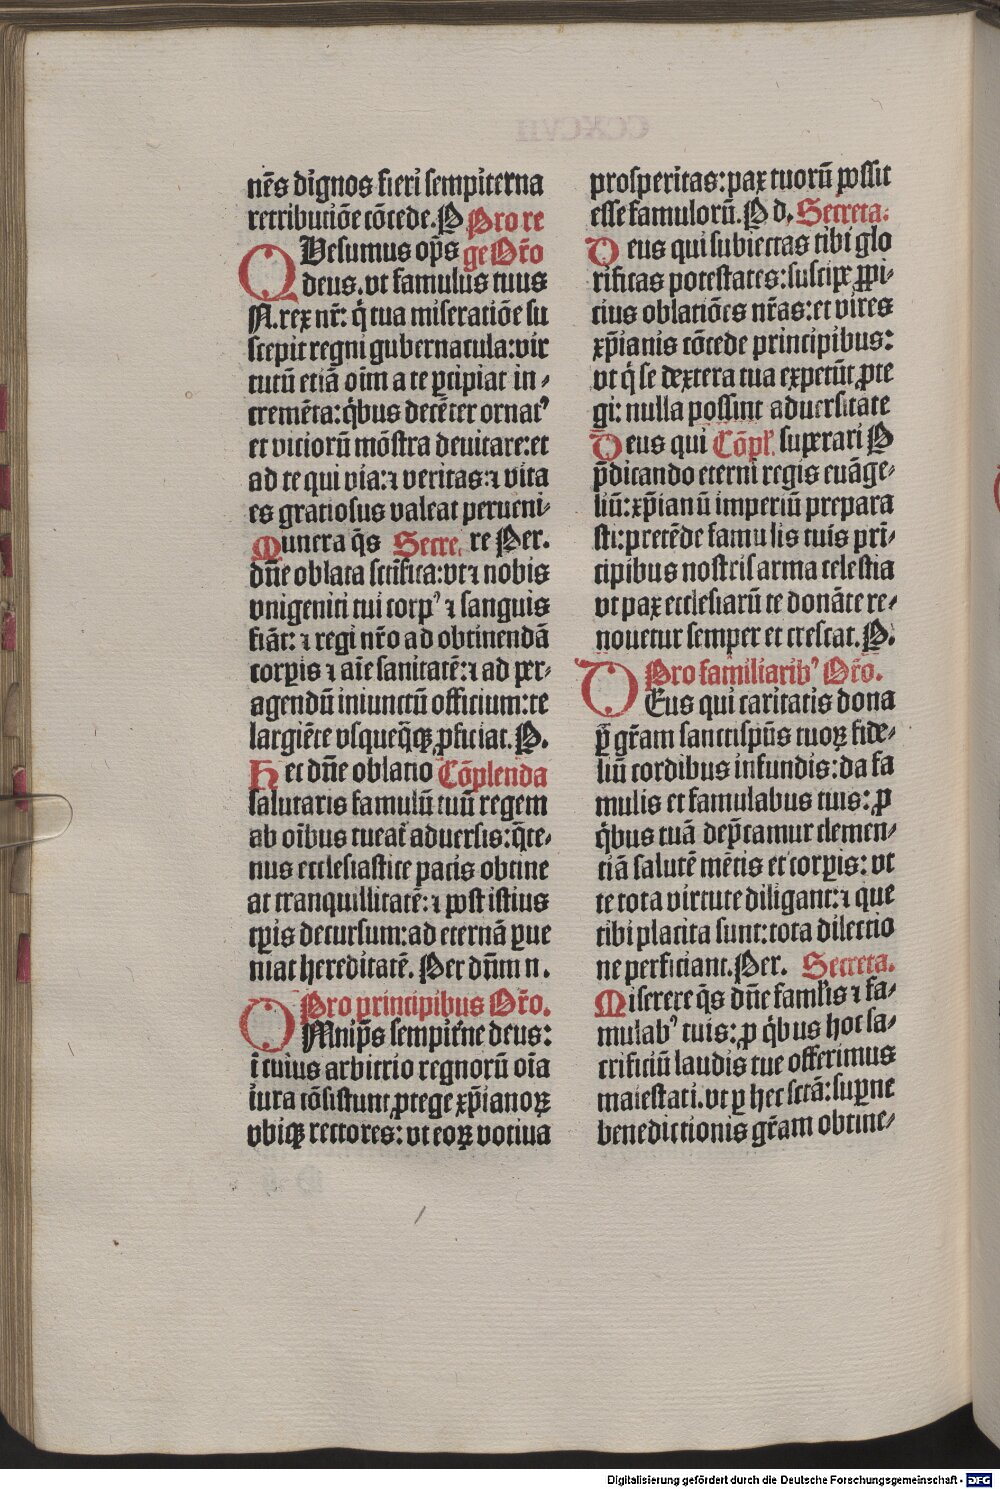 nēs dignos fieri sempiterna
retributiōe cōcede. P Pro re
QVesumus op̄s ge Or̄o
deus. vt famulus tuus
N. rex nr̄: q̄ tua miseratiōe su
scepit regni gubernacula: vir
tutū etiā oīm a te ꝑcipiat in⸗
cremēta: q̄bus decēter ornatꝰ
et viciorū mōstra deuitare: et
ad te qui via: ⁊ veritas: ⁊ vita
es gratiosus valeat perueni⸗
Munera q̄s Secre. re Per.
dn̄e oblata sctīfica: vt ⁊ nobis
vnigeniti tui corpꝰ ⁊ sanguis
fiāt: ⁊ regi nr̄o ad obtinendā
corꝑis ⁊ aīe sanitatē: ⁊ ad per⸗
agendū iniunctū officium: te
largiēte vsqueq̄qꝫ ꝓficiat. P.
Hec dn̄e oblatio Cōplenda
salutaris famulū tuū regem
ab oībus tueat̄ aduersis: q̄te⸗
nus ecclesiastice pacis obtine
at tranquillitatē: ⁊ post istius
tꝑis decursum: ad eternā ꝑue
niat hereditatē. Per dn̄m n.
Pro principibus Or̄o.
OMnip̄s sempit̄ne deus:
ī cuius arbitrio regnorū oīa
iura cōsistunt ꝓtege xp̄ianoꝝ
vbiqꝫ rectores: vt eoꝝ votiua
prosperitas: pax tuorū possit
esse famulorū. P d. Secreta:
Deus qui subiectas tibi glo
rificas potestates: suscipe ꝓpi⸗
cius oblatiōes nr̄as: et vires
xp̄ianis cōcede principibus:
vt q̄ se dextera tua expetūt ꝓte
gi: nulla possint aduersitate
Deus qui Cōpl̄. superari P
p̄dicando eterni regis euāge⸗
liū: xp̄ianū imperiū prepara
sti: pretēde famulis tuis prī⸗
cipibus nostris arma celestia
vt pax ecclesiarū te donāte re⸗
nouetur semper et crescat. P.
Pro familiaribꝰ Or̄o.
DEus qui caritatis dona
ꝑ gr̄am sancti sp̄us tuoꝝ fide⸗
liū cordibus infundis: da fa
mulis et famulabus tuis: ꝓ
q̄bus tuā dep̄camur clemen⸗
tiā salutē mētis et corꝑis: vt
te tota virtute diligant: ⁊ que
tibi placita sunt: tota dilectio
ne perficiant. Per. Secreta.
Miserere q̄s dn̄e famlīs ⁊ fa⸗
mulabꝰ tuis: ꝓ q̄bus hoc sa⸗
crificiū laudis tue offerimus
maiestati. vt ꝑ hec sctā: suꝑne
benedictionis gr̄am obtine⸗
Digitalisierung gefördert durch die Deutsche Forschungsgemeinschaft - DFG